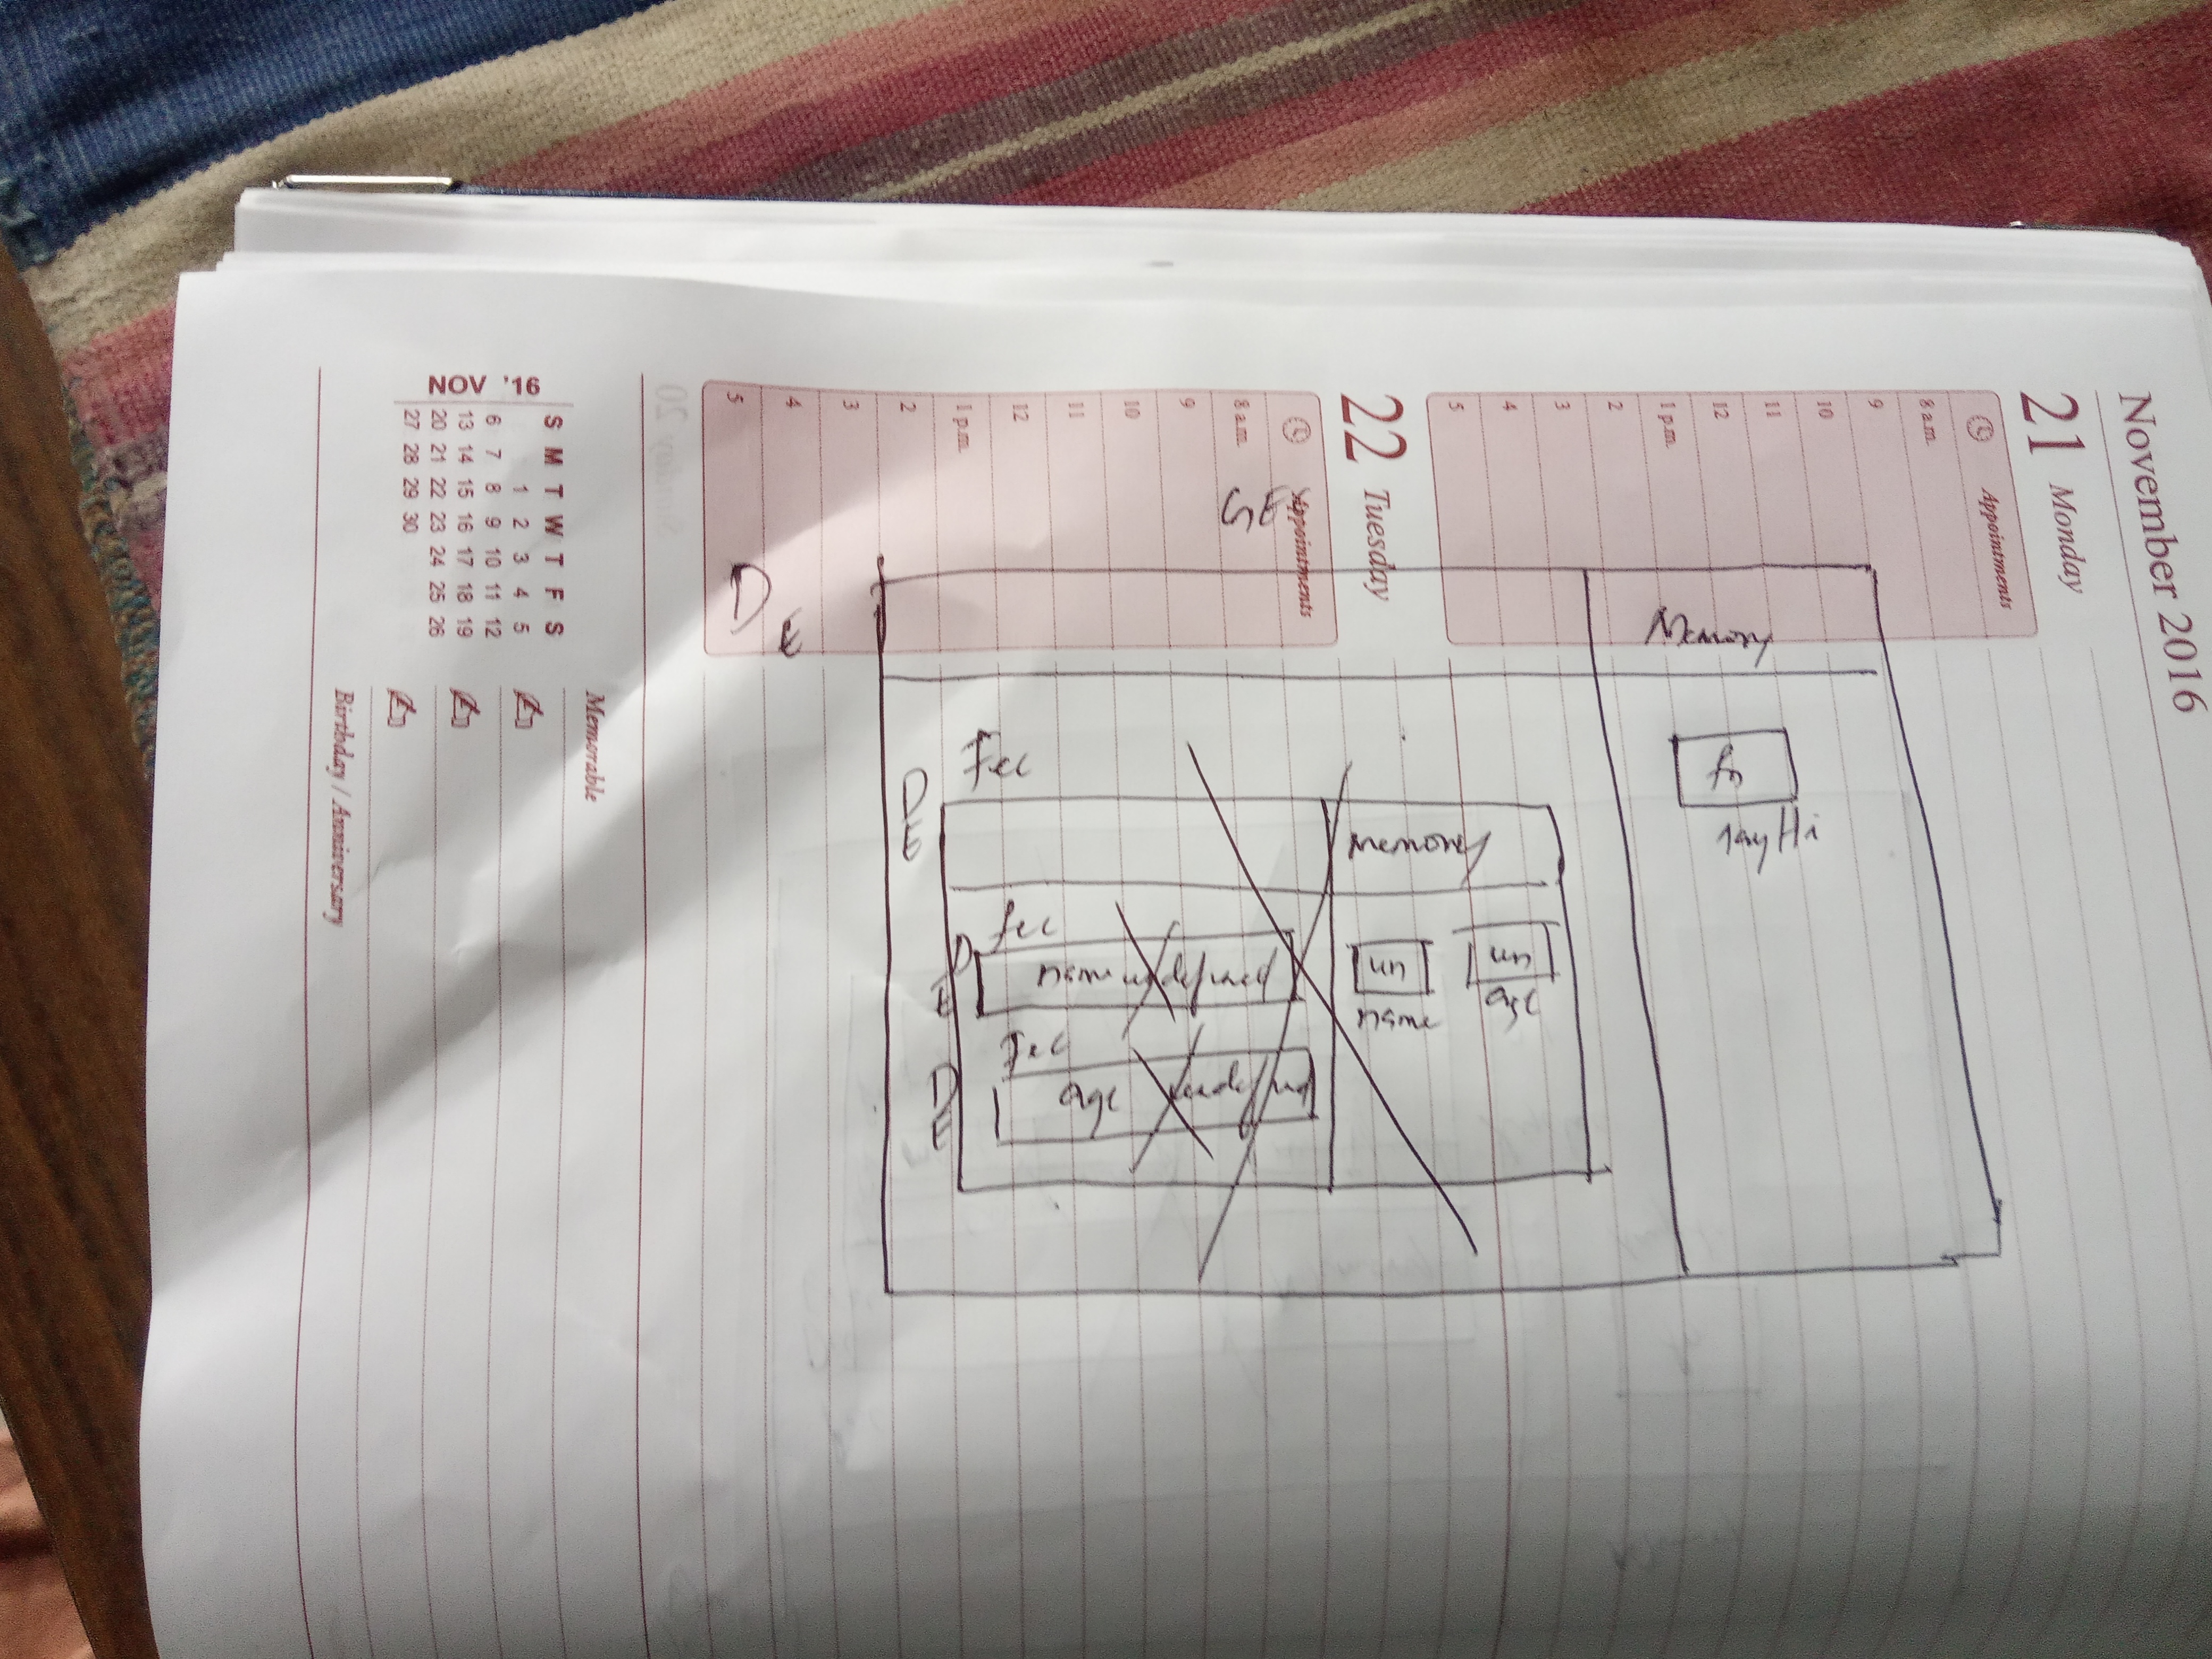 November 2016
21 Monday
Appointments
8 a.m.
9
10
11
12
1 p.m.
2
3
4
5
22 Tuesday
Appointments
8 a.m.
9
10
11
12
1 p.m.
2
3
4
5
NOV '16
S M T W T F S
1 2 3 4 5
6 7 8 9 10 11 12
13 14 15 16 17 18 19
20 21 22 23 24 25 26
27 28 29 30
Memorable
Birthday / Anniversary
GEC
D
E
Memory
fn
sayHi
Fec
D
E
memory
fec
D
E
name undefined
un
name
un
age
Fec
D
E
age undefined